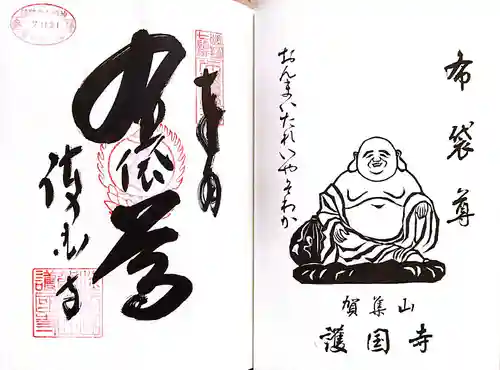 奉拝
布袋尊
護国寺
7.11.21
布袋尊
おんまいたれいやそわか
賀集山
護国寺